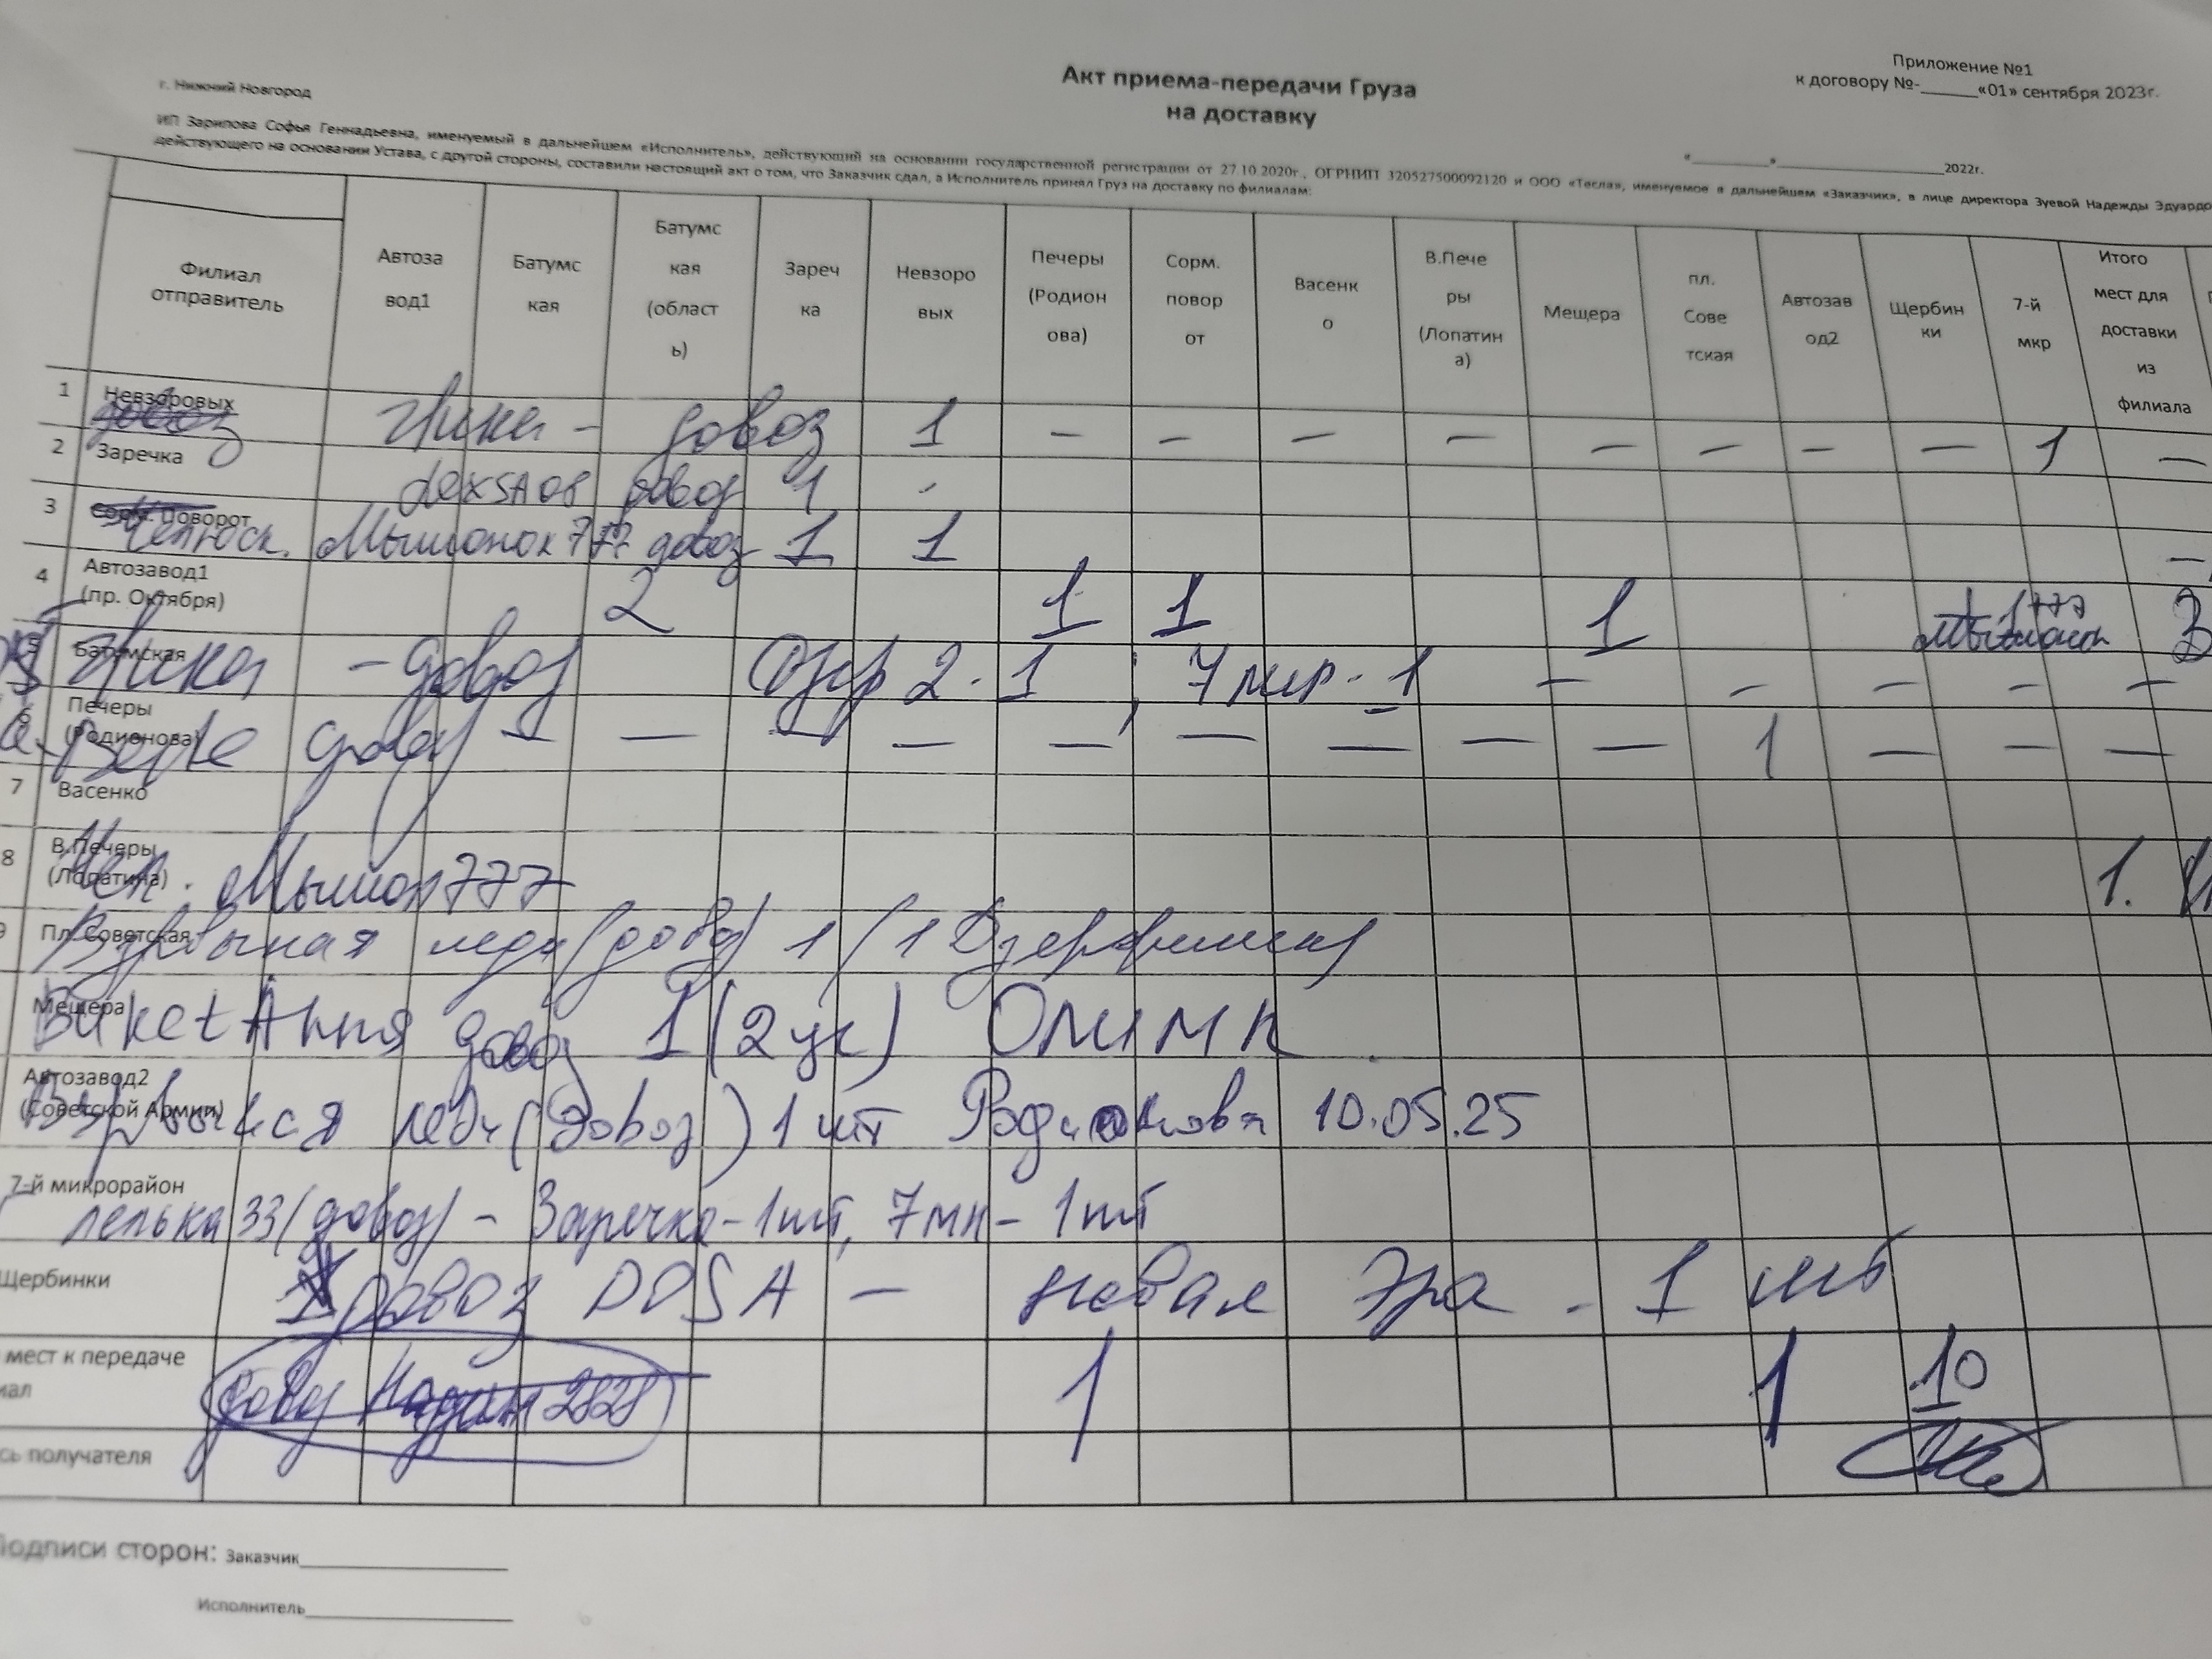 Приложение №1
к договору №-______«01» сентября 2023г.
Акт приема-передачи Груза
на доставку
г. Нижний Новгород
«_________»____________________2022г.
ИП Зарипова Софья Геннадьевна, именуемый в дальнейшем «Исполнитель», действующий на основании государственной регистрации от 27.10.2020г., ОГРНИП 320527500092120 и ООО «Тесла», именуемое в дальнейшем «Заказчик», в лице директора Зуевой Надежды Эдуардо
действующего на основании Устава, с другой стороны, составили настоящий акт о том, что Заказчик сдал, а Исполнитель принял Груз на доставку по филиалам:
Филиал отправитель Автоза вод1 Батумс кая Батумс кая (област ь) Зареч ка Невзоро вых Печеры (Родион ова) Сорм. повор от Васенк о В.Пече ры (Лопатин а) Мещера пл. Сове тская Автозав од2 Щербин ки 7-й мкр Итого мест для доставки из филиала
1 Невзоровых
довоз 1 – – – – – – – – 1 –
2 Заречка
довоз 1 -
3 Сорм. Поворот
Мышонок 777 довоз 1 1 –
4 Автозавод1
(пр. Октября) 2 1 1 1 777 3
5 Батумская
– довоз 2 - 1 ; 7 мкр - 1 – – – – –
6 Печеры
(Родионова) довоз – – – – – – – – – 1 – – –
7 Васенко
8 В.Печеры
(Лопатина) Мышон 777 1.
9 Пл.Советская
Взрывная леди (довоз) 1 (1 Дзержинск)
Мещера
Аня довоз 1 (2 ук) Олимп
Автозавод2
(Советской Армии)
леди (Довоз) 1 шт Родионова 10.05.25
7-й микрорайон
лелька 33 (довоз) – Заречка – 1шт, 7мк – 1шт
Щербинки довоз DOSA – новая Эра - 1 шт
мест к передаче
иал довоз 2828 1 1 10
сь получателя
Подписи сторон: Заказчик____________________
Исполнитель____________________